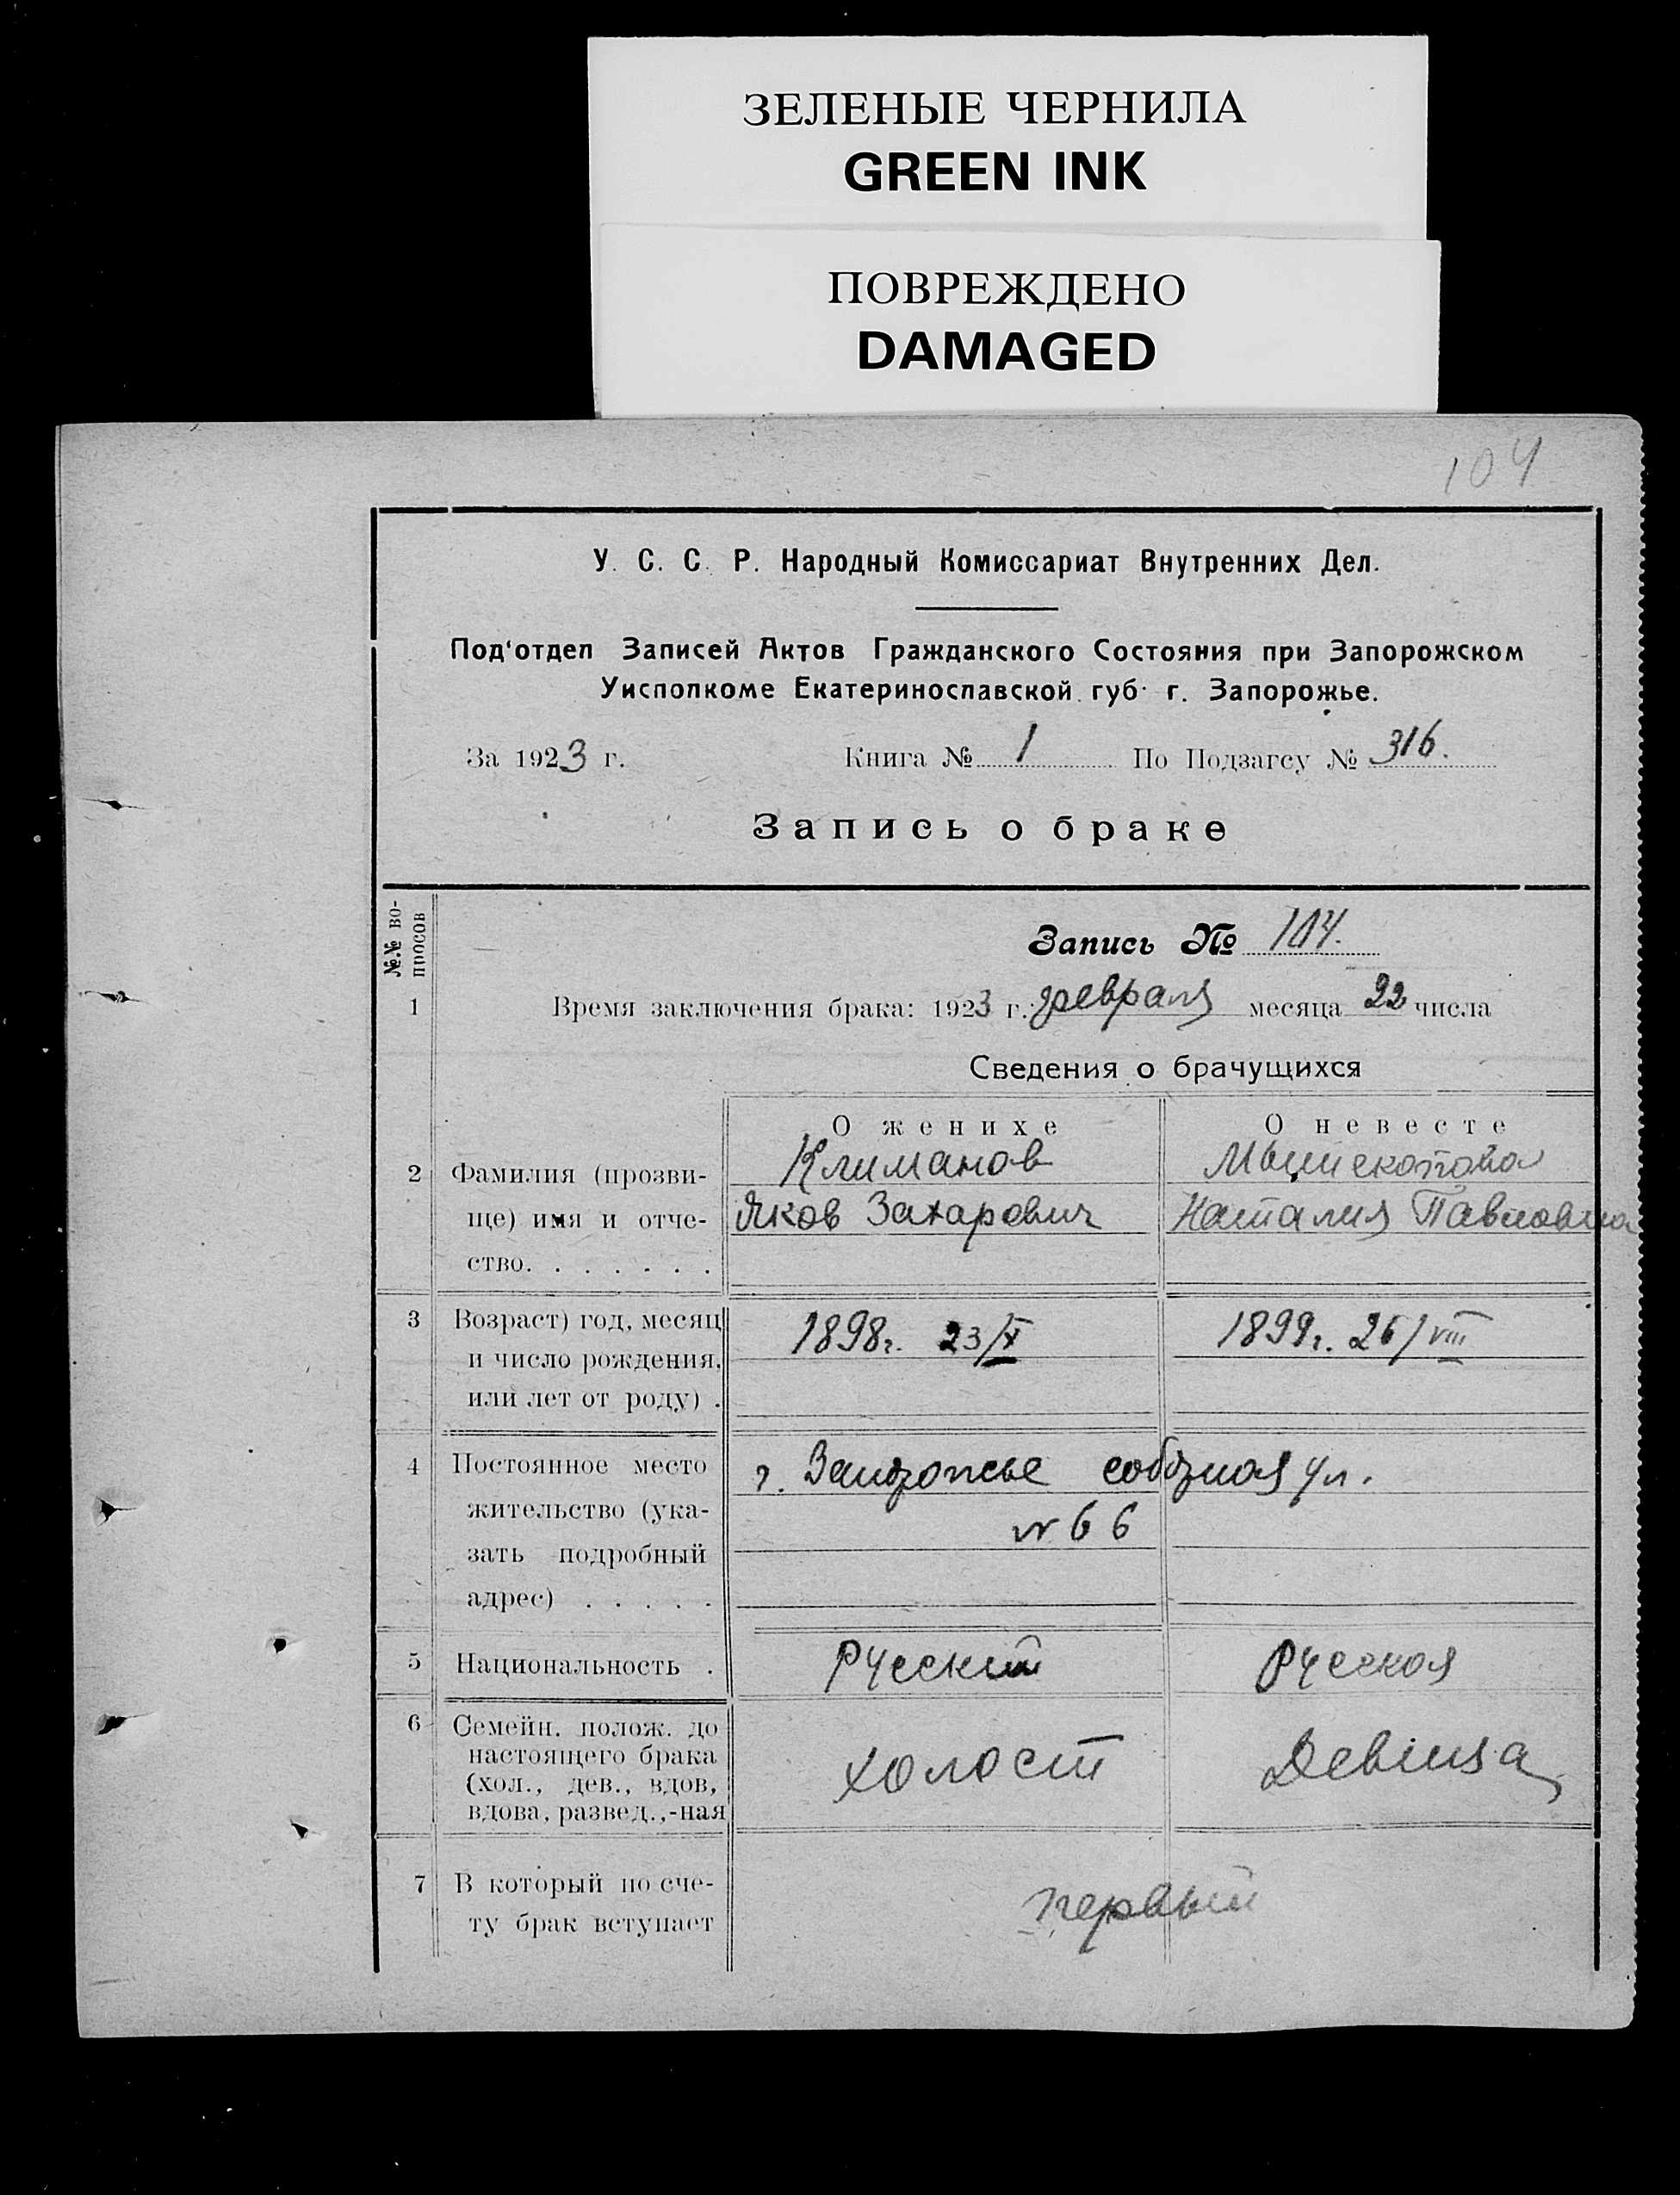 ЗЕЛЕНЫЕ ЧЕРНИЛА
GREEN INK
ПОВРЕЖДЕНО
DAMAGED
104
У. С. С. Р. Народный Комиссариат Внутренних Дел.
Под‘отдел Записей Актов Гражданского Состояния при Запорожском
Уисполкоме Екатеринославской губ. г. Запорожье.
За 1923 г. Книга № 1 По Подзагсу № 316.
Запись о браке
№.№ во-
просов
Запись № 104.
1 Время заключения брака: 1923 г. февраля месяца 22 числа
Сведения о брачущихся
О женихе О невесте
2 Фамилия (прозви- Климанов
ще) имя и отче- Яков Захарович Наталия Павловна
ство. . . . . . .
3 Возраст) год, месяц 1898г. 23/X 1899г. 26/VIII
и число рождения,
или лет от роду) .
4 Постоянное место г. Запорожье соборная ул.
жительство (ука- № 66
зать подробный
адрес) . . . . .
5 Национальность . Русский Русская
6 Семейн. полож. до
настоящего брака холост Девица
(хол., дев., вдов,
вдова, развед.,-ная
7 В который по сче- первый
ту брак вступает